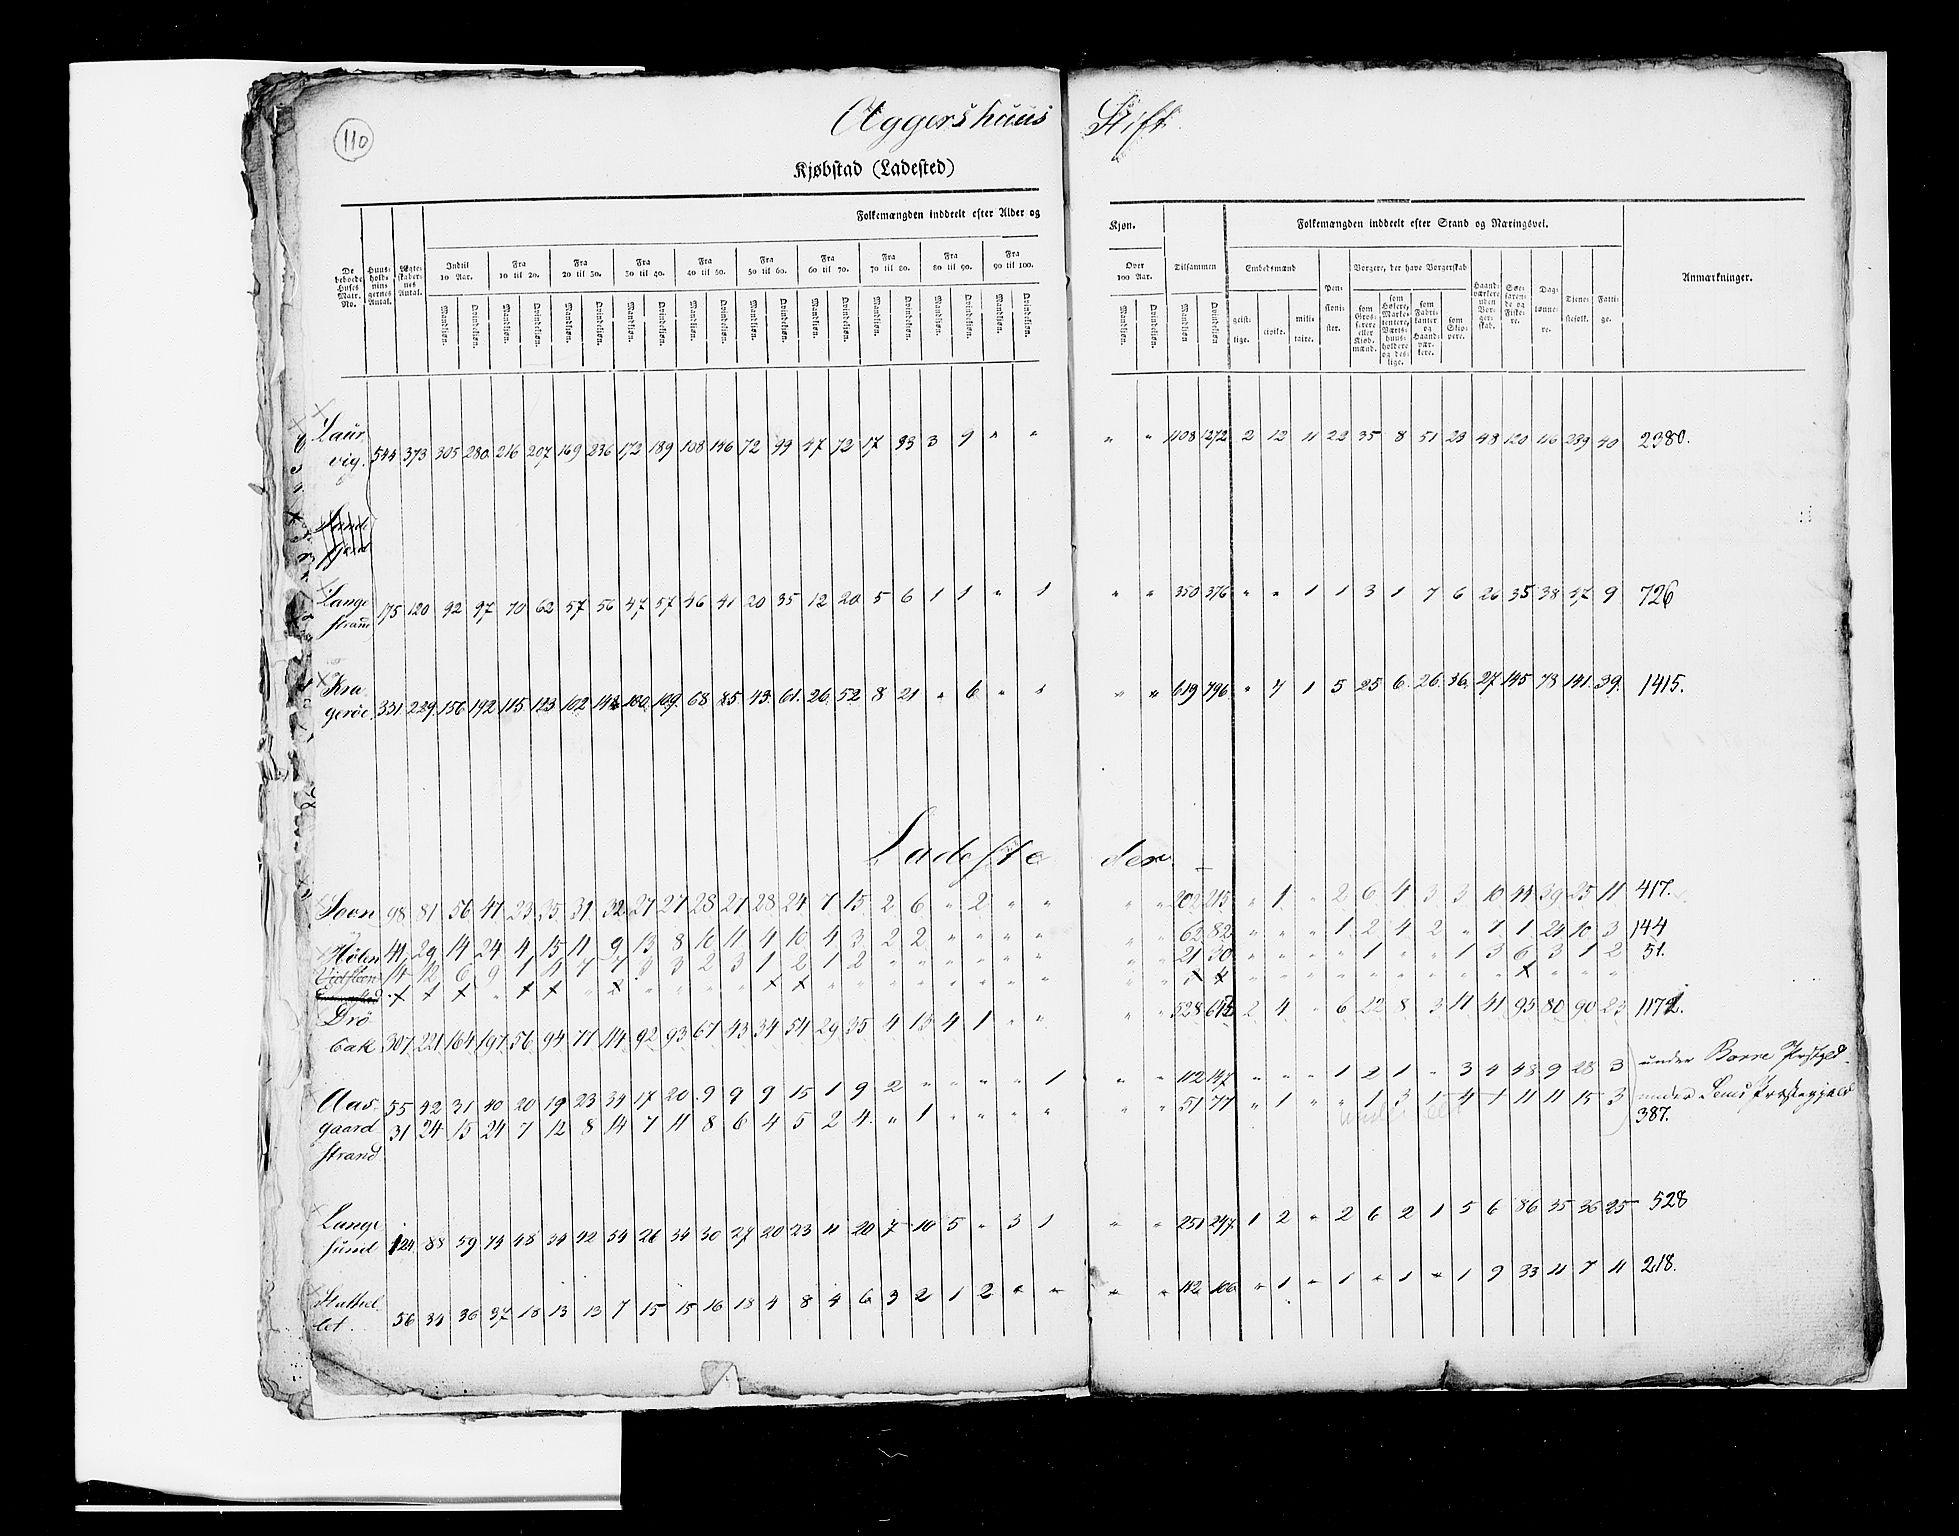 110
Aggershuus Stift.
Kjøbstad (Ladested)
Folkemængden inddeelt efter Alder og Kjøn.
Folkemængden inddeelt efter Stand og Næringsvei.
De beboede Huses Matr. No.
Huus-holdnin-gernes Antal.
Ægte-skaber-nes Antal.
Indtil 10 Aar.
Fra 10 til 20.
Fra 20 til 30.
Fra 30 til 40.
Fra 40 til 50.
Fra 50 til 60.
Fra 60 til 70.
Fra 70 til 80.
Fra 80 til 90.
Fra 90 til 100.
Over 100 Aar.
Tilsammen
Mandkiøn. Qvindekiøn.
Embedsmænd
geist-lige. civile. mili-taire.
Pen-sioni-ster.
Borgere, der have Borgerskab
som Gros-serere eller Kjøb-mænd.
som Høkere, Marke-tentere, Værts-huus-holdere og des-lige.
som Fabri-kanter og Haand-vær-kere.
som Skip-pere.
Haand-værkere uden Bor-ger-skab.
Søe-faren-de og Fiske-re.
Dag-lønne-re.
Tjene-stefolk.
Fatti-ge.
Anmærkninger.
Laur-vig. 544 373 305 280 216 207 169 236 172 189 108 146 72 99 47 72 17 33 3 9 " " " " 1108 1272 2 12 11 22 35 8 51 23 48 120 116 239 40 2380.
Sande fjord
Lange strand 175 120 92 97 70 62 57 56 47 57 46 41 20 35 12 20 5 6 1 1 " 1 " " 350 376 " " 1 1 3 1 7 6 26 35 38 47 9 726
Kra-gerøe 331 229 156 142 115 123 102 142 100 109 68 85 43 61 26 52 8 21 " 6 " " " " 619 796 " 7 1 5 25 6 26 36 27 145 78 141 39. 1415.
Ladesteder
Soon 98 81 56 47 23 35 31 32 27 27 28 21 28 24 7 15 2 6 " 2 " " " " 202 215 " 1 " 2 6 4 3 3 10 44 39 25 11 417.
Hølen 41 29 14 24 4 15 11 9 13 8 10 11 4 10 4 3 2 2 " " " " " " 62 82 " " " 1 2 4 2 " 7 1 24 10 3 144
14 12 6 9 1 4 7 7 3 3 2 3 1 2 1 2 " " " " " " " " 21 30 " " " " 1 " " 1 3 6 3 1 2 51.
Drø bak 307 221 164 197 56 94 77 114 92 93 67 43 34 54 29 35 4 13 4 1 " " " " 528 2 4 " 6 22 8 3 11 41 93 80 90 23
Aas-gaard strand 55 42 31 40 20 19 23 34 17 20 9 9 9 15 1 9 2 " " " " 1 " " 112 147 " " " 1 2 1 " 3 4 48 9 28 3 under Borre Præstgd.
31 24 15 24 7 12 8 14 7 11 8 6 4 5 2 4 " 1 " " " " " " 51 77 " 1 " " 1 3 1 4 1 11 11 15 3 under Præstegjeld
387.
Lange sund 124 88 59 74 48 34 42 34 26 34 30 27 20 23 11 20 7 10 5 " 3 1 " " 251 247 1 2 " 2 6 2 1 5 6 86 35 36 25 528
Stathel let. 56 34 36 37 18 13 13 7 15 15 16 18 4 8 4 6 3 2 1 2 " " " " 112 106 " 1 " 1 " 1 " 1 9 33 11 7 11 218.